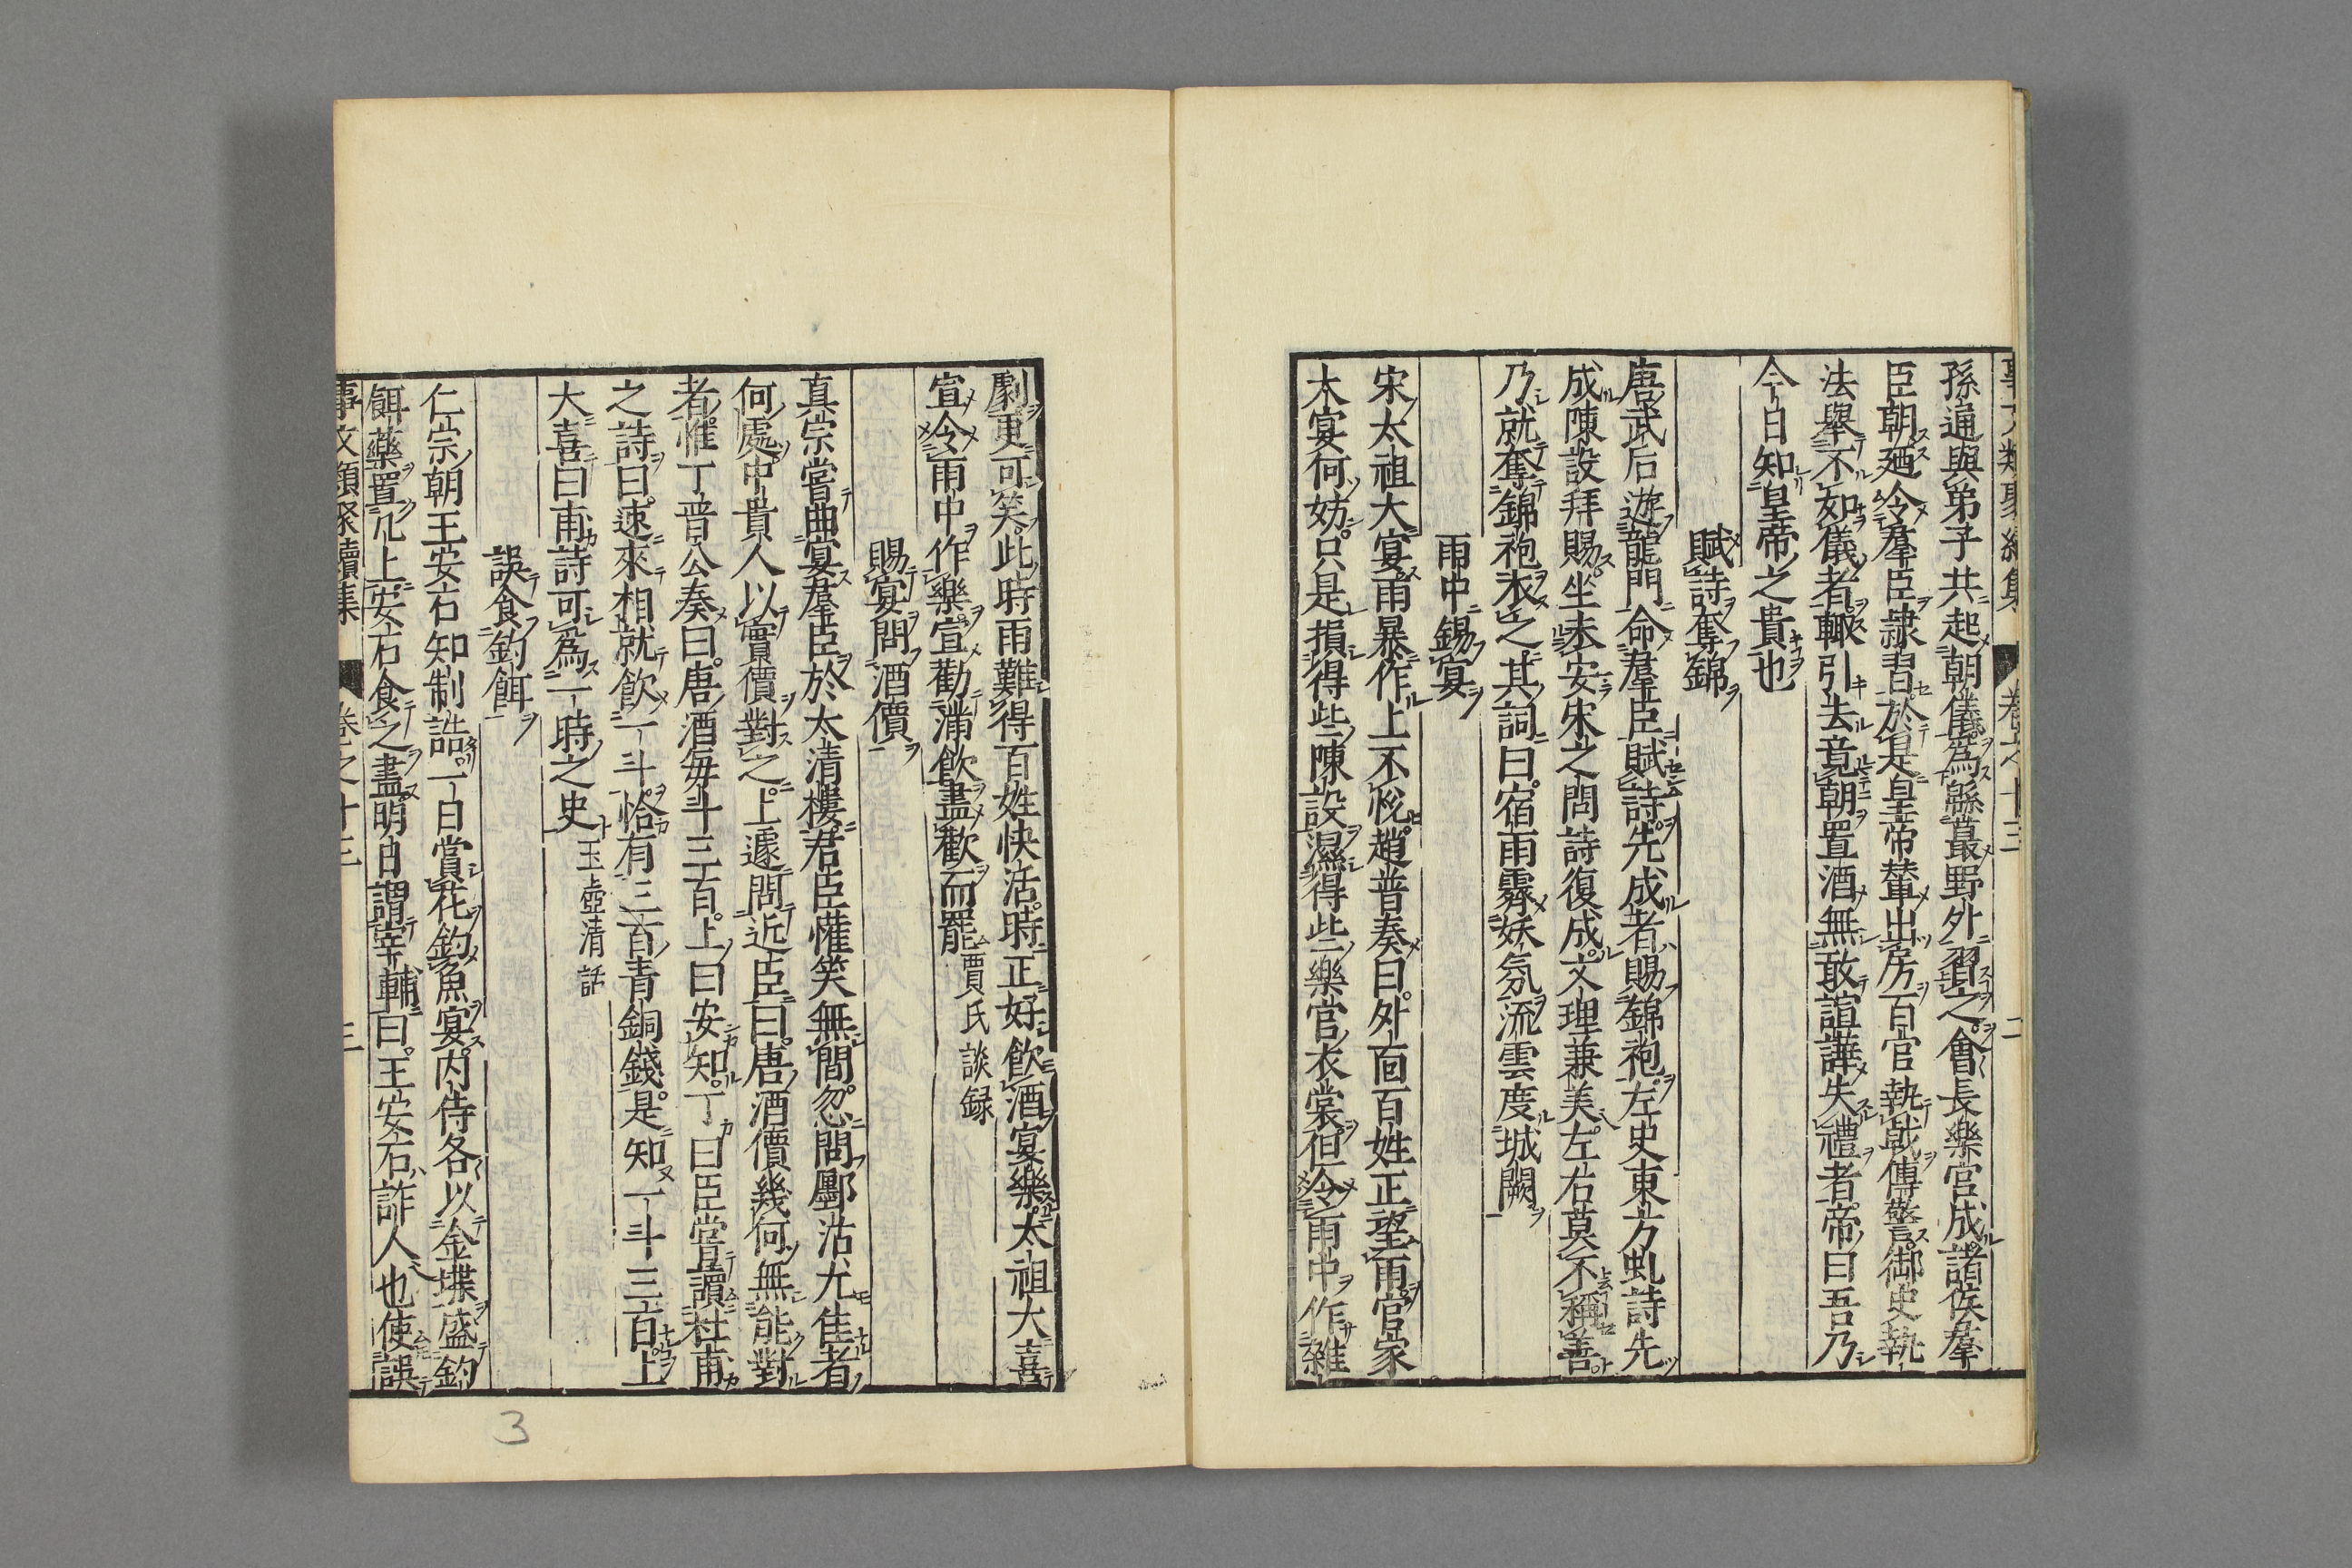 事文類聚續集 卷之十三 二
孫通與弟子共起朝儀爲緜蕞野外習之會長樂宮成諸侯羣
臣朝廼令羣臣隷習於是皇帝輦出房百官執戟傳警御史執
法舉不如儀者輙引去竟朝置酒無敢諠譁失禮者帝曰吾乃
今日知皇帝之貴也
賦詩奪錦
唐武后遊龍門命羣臣賦詩先成者賜錦袍左史東方虬詩先
成陳設拜賜坐未安宋之問詩復成文理兼美左右莫不稱善
乃就奪錦袍衣之其詞曰宿雨霽妖氛流雲度城闕
雨中錫宴
宋太祖大宴雨暴作上不悅趙普奏曰外面百姓正望雨官家
大宴何妨只是損得些陳設濕得些樂官衣裳但令雨中作雜
劇更可笑此時雨難得百姓快活時正好飲酒宴樂太祖大喜
宣令雨中作樂宣勸滿飲盡歡而罷 賈氏談録
賜宴問酒價
真宗嘗曲宴羣臣於太清樓君臣懽笑無間忽問鄽沽尤佳者
何處中貴人以實價對之上遽問近臣曰唐酒價幾何無能對
者惟丁晉公奏曰唐酒毎斗三百上曰安知丁曰臣嘗讀杜甫
之詩曰速來相就飲一斗恰有三百青銅錢是知一斗三百上
大喜曰甫詩可爲一時之史 玉壺清話
誤食釣餌
仁宗朝王安石知制誥一日賞花釣魚宴内侍各以金堞盛釣
餌藥置几上安石食之盡明日謂宰輔曰王安石詐人也使誤
事文類聚續集 卷之十三 三
3